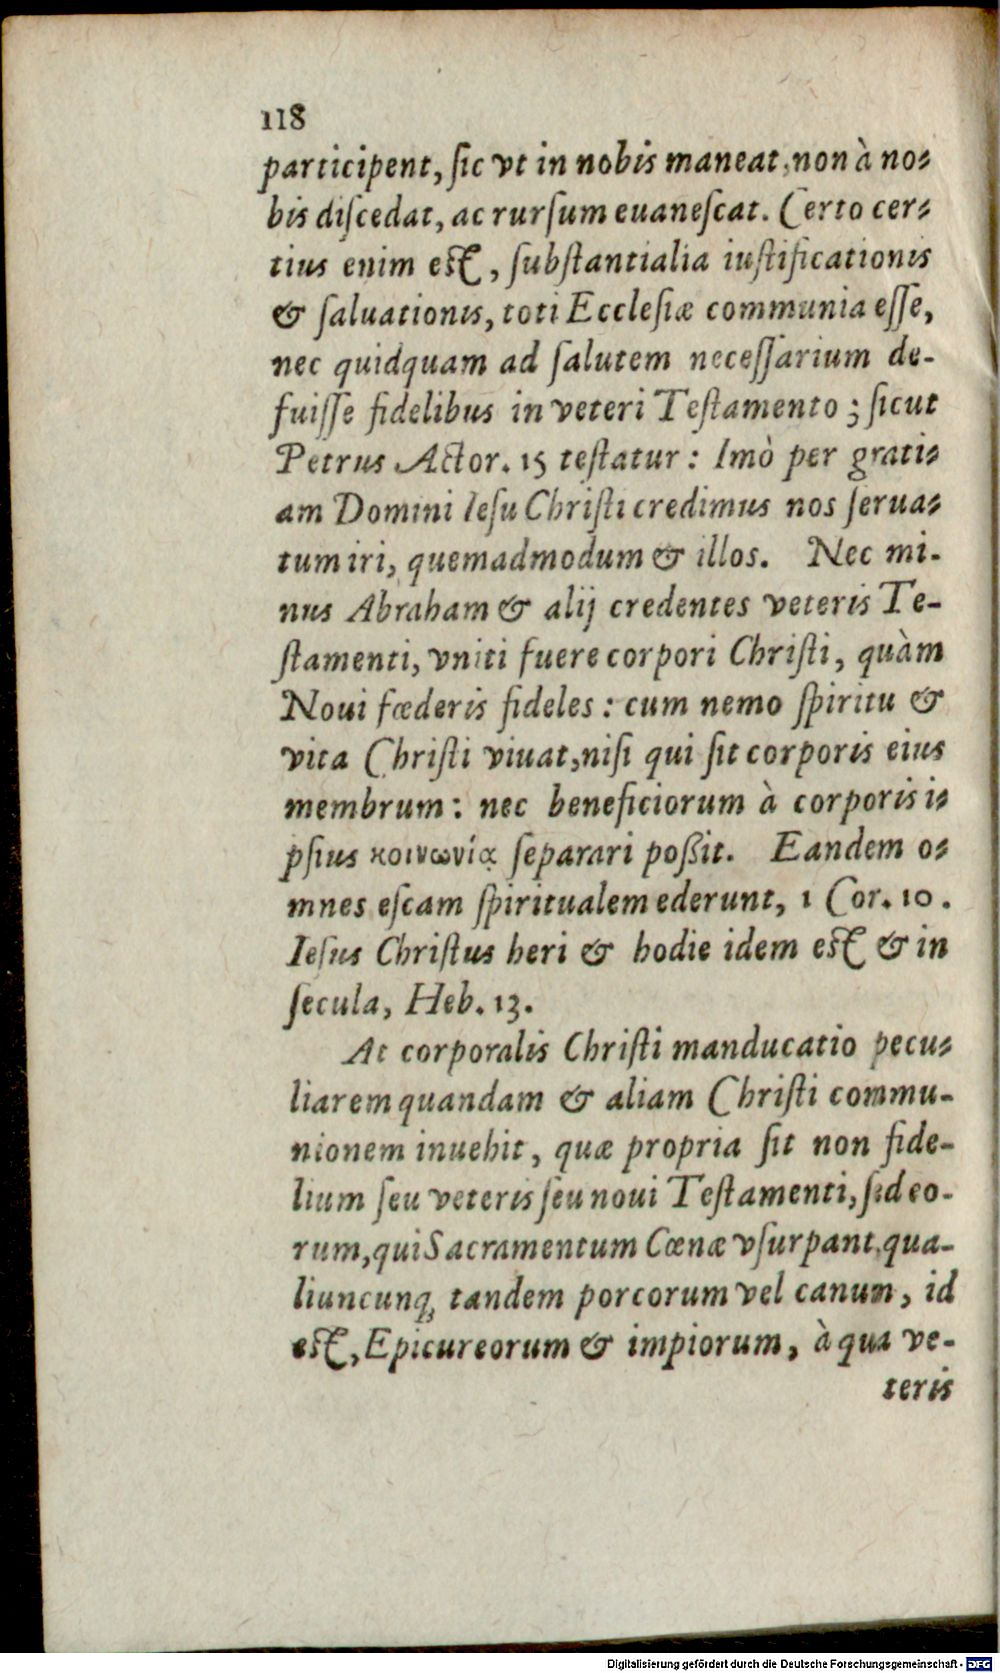 118
participent, ſic vt in nobis maneat, non à no⸗
bis diſcedat, ac rurſum euaneſcat. Certo cer⸗
tius enim eſt, ſubſtantialia iuſtificationis
& ſaluationis, toti Eccleſiæ communia eſſe,
nec quidquam ad ſalutem neceſſarium de-
fuiſſe fidelibus in veteri Teſtamento; ſicut
Petrus Actor. 15 teſtatur: Imò per grati⸗
am Domini Ieſu Chriſti credimus nos ſerua⸗
tum iri, quemadmodum & illos. Nec mi-
nus Abraham & alij credentes veteris Te-
ſtamenti, vniti fuere corpori Chriſti, quàm
Noui fœderis fideles: cum nemo ſpiritu &
vita Chriſti viuat, niſi qui ſit corporis eius
membrum: nec beneficiorum à corporis i⸗
pſius κοινωνίᾳ ſeparari poßit. Eandem o⸗
mnes eſcam ſpiritualem ederunt, 1 Cor. 10.
Ieſus Chriſtus heri & hodie idem eſt & in
ſecula, Heb. 13.
At corporalis Chriſti manducatio pecu⸗
liarem quandam & aliam Chriſti commu-
nionem inuehit, quæ propria ſit non fide-
lium ſeu veteris ſeu noui Teſtamenti, ſed eo-
rum, qui Sacramentum Cœnæ vſurpant, qua-
liuncunq; tandem porcorum vel canum, id
eſt, Epicureorum & impiorum, à qua ve-
teris
Digitalisierung gefördert durch die Deutsche Forschungsgemeinschaft - DFG